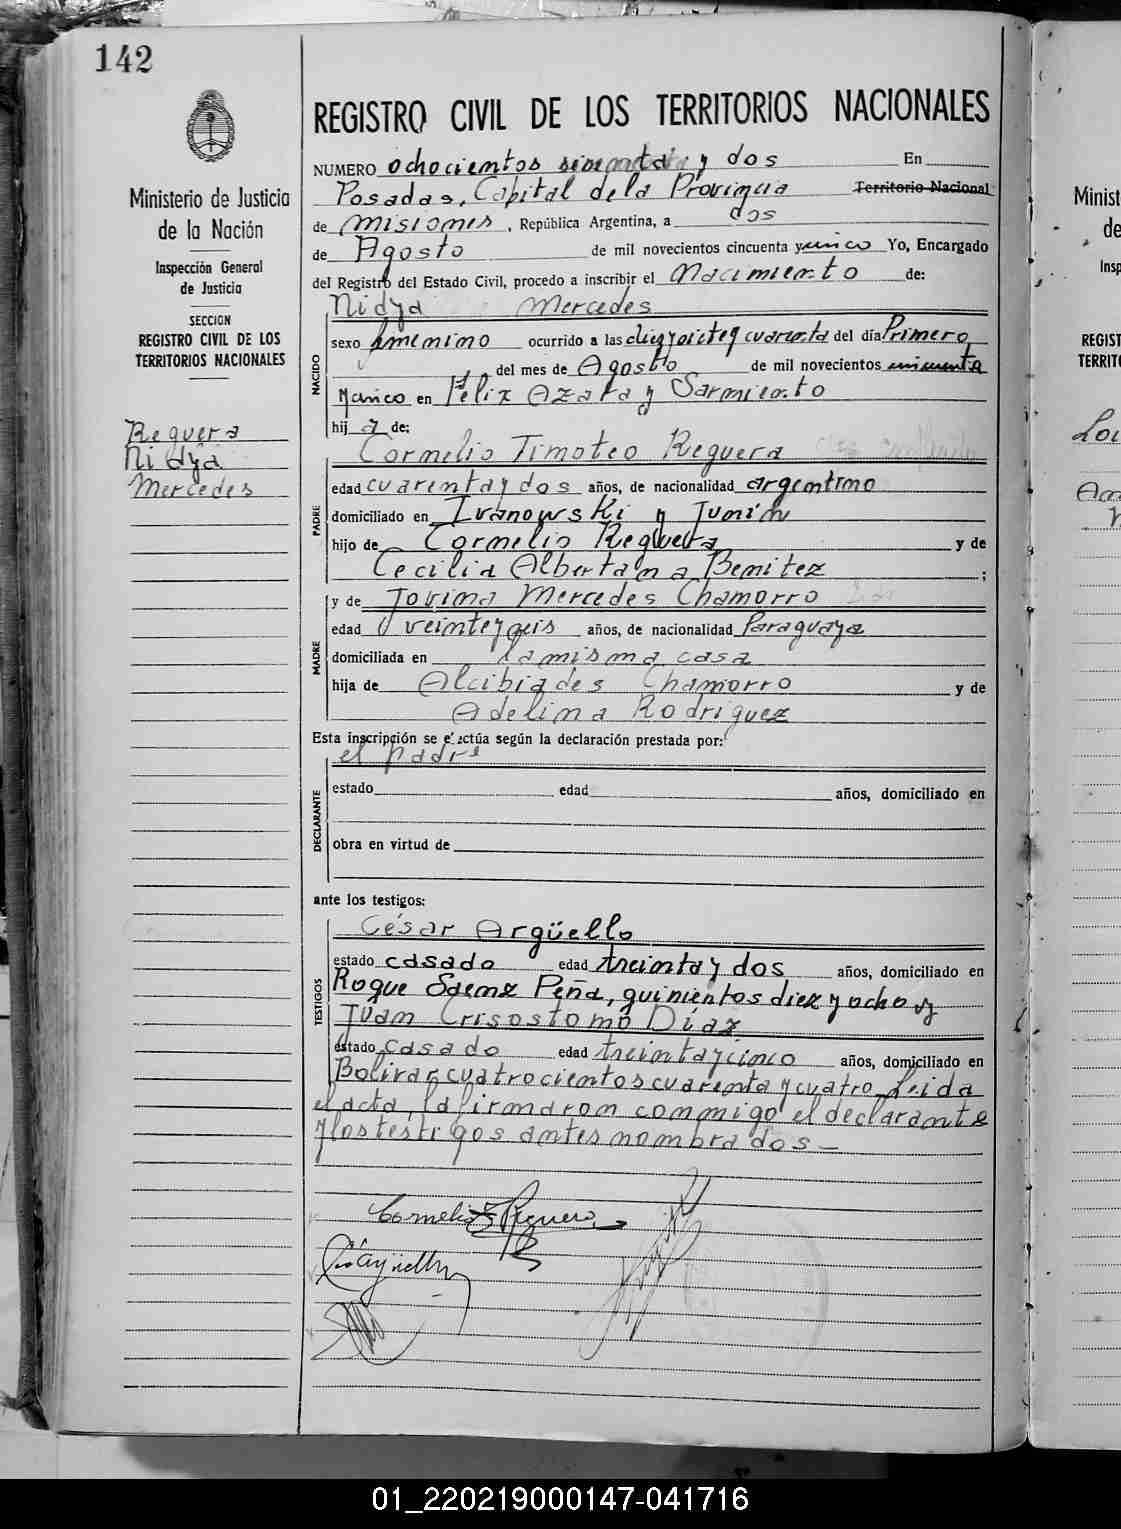 142
REGISTRO CIVIL DE LOS TERRITORIOS NACIONALES
Ministerio de Justicia
de la Nación
Inspección General
de Justicia
SECCION
REGISTRO CIVIL DE LOS
TERRITORIOS NACIONALES
Reguera
Nidya
Mercedes
NUMERO ochocientos y dos En
Posadas, Capital de la Provincia Territorio Nacional
de Misiones, República Argentina, a dos
de Agosto de mil novecientos cincuenta y unico Yo, Encargado
del Registro del Estado Civil, procedo a inscribir el Nacimiento de:
NACIDO
Nidya Mercedes
sexo femenino ocurrido a las diez y siete y cuarenta del día Primero
del mes de Agosto de mil novecientos cincuenta
y unico en Félix Azara y Sarmiento
hij a de:
PADRE
Cornelio Timoteo Reguera
edad cuarenta y dos años, de nacionalidad argentino
domiciliado en Ivanowski y Junín
hijo de Cornelio Reguera y de
Cecilia Albertana Benitez ;
MADRE
y de Jovina Mercedes Chamorro
edad veinteyseis años, de nacionalidad Paraguaya
domiciliada en la misma casa
hija de Alcibiades Chamorro y de
Adelina Rodriguez
Esta inscripción se efectúa según la declaración prestada por:
el padre
DECLARANTE
estado edad años, domiciliado en
obra en virtud de
ante los testigos:
TESTIGOS
César Argüello
estado casado edad treinta y dos años, domiciliado en
Roque Saenz Peña, quinientos diez y ocho y
Juan Crisostomo Díaz
estado casado edad treinta y cinco años, domiciliado en
Bolivar cuatrocientos cuarenta y cuatro Leida
el acta, la firmaron conmigo el declarante
y los testigos antes nombrados—
Cornelio T Reguera
C Argüello
Minist
de
Insp
REGIST
TERRIT
01_220219000147-041716